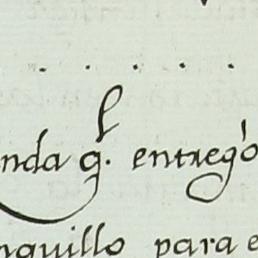 nda q^l. entregò
nquillo para e